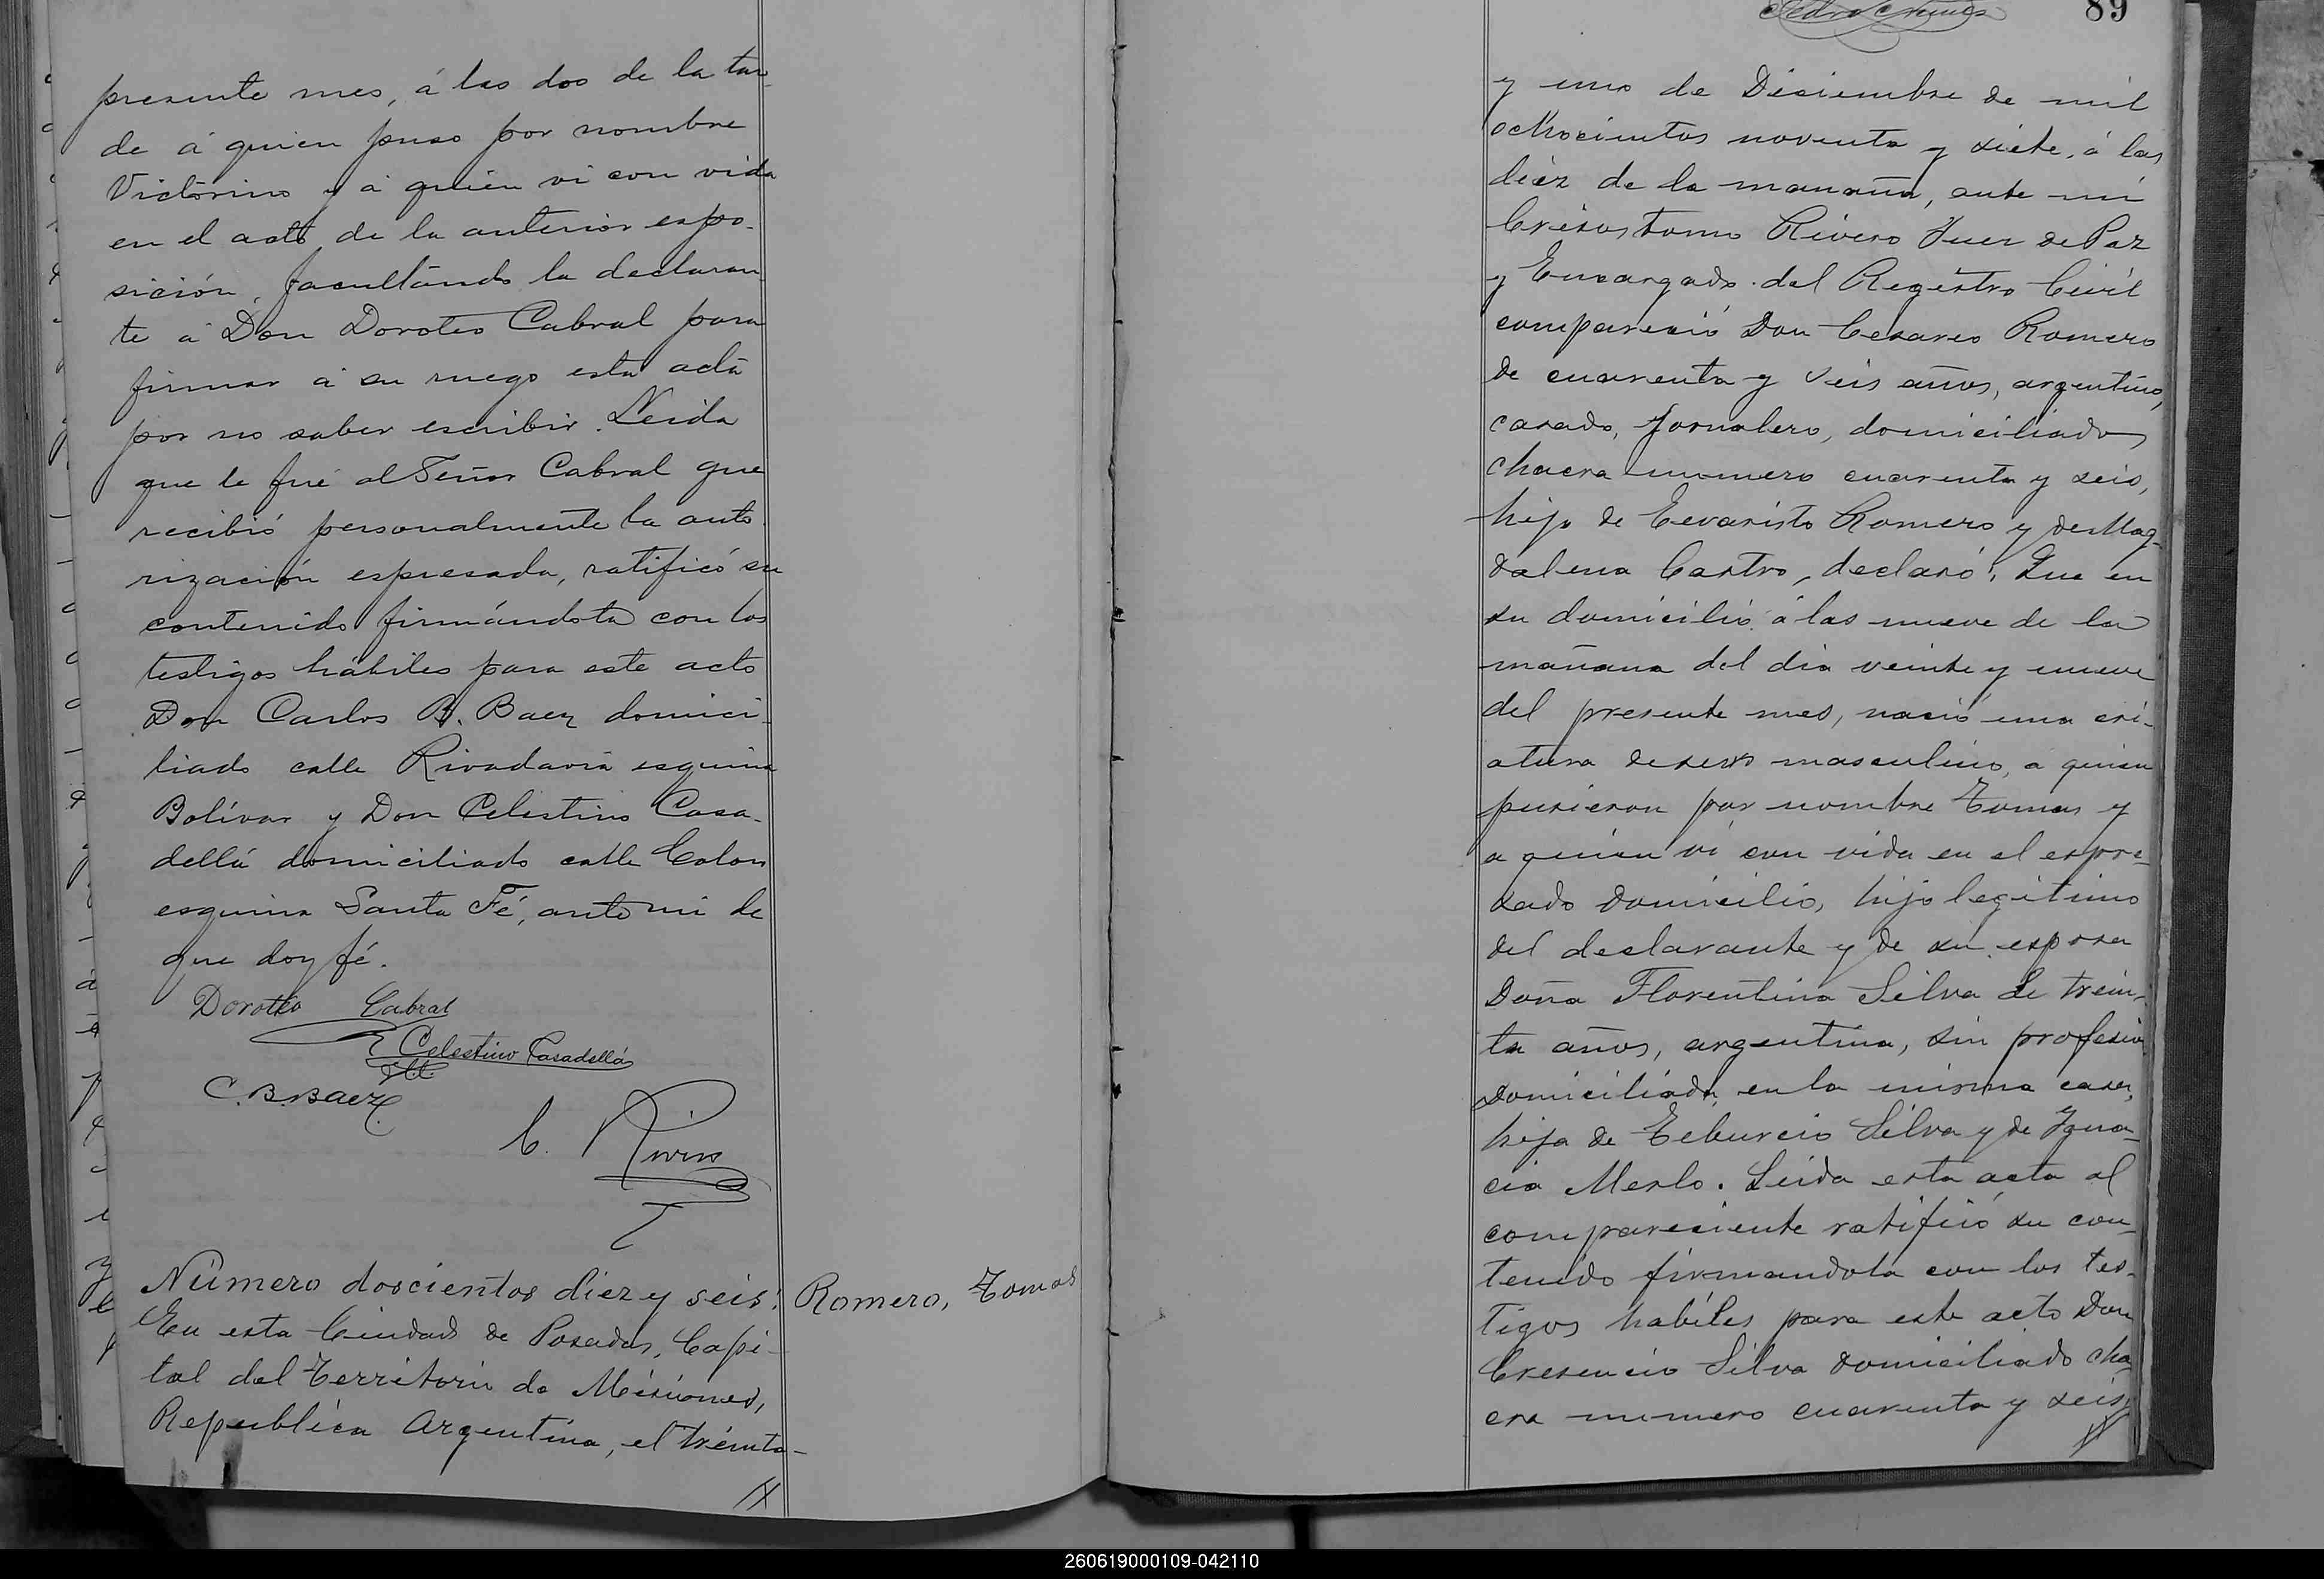 presente mes, á las dos de la tar
de á quien puso por nombre
Victorino y á quien vi con vida
en el acto de la anterior espo-
sición, facultando la declaran
te á Don Doroteo Cabral para
firmar á su ruego esta acta
por no saber escribir. Leida
que le fué al Señor Cabral que
recibió personalmente la auto
rización espresada, ratificó su
contenido firmándola con los
testigos hábiles para este acto
Don Carlos B. Baez domici-
liado calle Rivadavia esquina
Bolívar y Don Celestino Casa-
dellá domiciliado calle Colon
esquina Santa Fé, ante mi de
que doy fé.
Doroteo Cabral
Celestino Casadellá
C. B. Baez
C. Rivero
Número doscientos diez y seis:
En esta Ciudad de Posadas, Capi-
tal del Territorio de Misiones,
Republica Argentina, el treinta-
Romero, Tomas
89
y uno de Diciembre de mil
ochocientos noventa y siete, á las
diez de la mañana, ante mi
Crisostomo Rivero Juez de Paz
y Encargado del Registro Civil
compareció Don Cesareo Romero
de cuarenta y seis años, argentino,
casado, Jornalero, domiciliado
chacra numero cuarenta y seis,
hijo de Evaristo Romero y de Mag-
dalena Castro, declaró: Que en
su domicilio á las nueve de la
mañana del dia veinte y nueve
del presente mes, nació una cri-
atura de sexo masculino, a quien
pusieron por nombre Tomas y
a quien vi con vida en el espre-
sado domicilio, hijo legitimo
del declarante y de su esposa
Doña Florentina Silva de trein-
ta años, argentina, sin profesion
domiciliada en la misma casa,
hija de Teburcio Silva y de Igna-
cia Merlo. Leida esta acta al
compareciente ratificó su con-
tenido firmandola con los tes-
tigos habiles para este acto Don
Cresencio Silva domiciliado cha
cra numero cuarenta y seis,